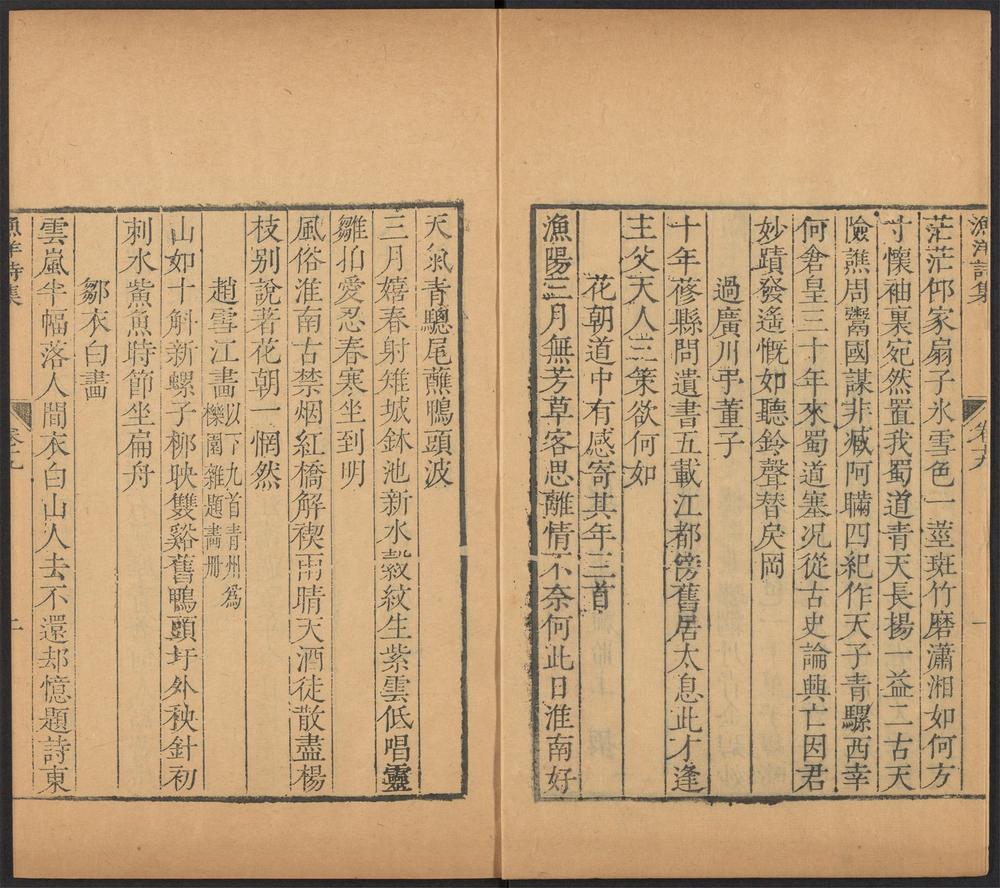 漁洋詩集
卷十九
一
茫茫邱家扇子冰雪色一莖斑竹磨瀟湘如何方
寸懷袖裏宛然置我蜀道青天長楊一益二古天
險譙周鬻國謀非臧阿瞞四紀作天子青騾西幸
何倉皇三十年來蜀道塞况從古史論興亡因君
妙蹟發遙慨如聽鈴聲替戾岡
過廣川弔董子
十年蓚縣問遺書五載江都傍舊居太息此才逢
主父天人三策欲何如
花朝道中有感寄其年三首
漁陽三月無芳草客思離情不奈何此日淮南好
天氣青驄尾蘸鴨頭波
三月嬉春射雉城鉢池新水縠紋生紫雲低唱靈
雛拍愛忍春寒坐到明
風俗淮南古禁烟紅橋解禊雨晴天酒徒散盡楊
枝别說著花朝一惘然
趙雪江畫以下九首青州爲
櫟園雜題畫册
山如十斛新螺子栁映雙谿舊鴨頭圩外秧針初
刺水鮆魚時節坐扁舟
鄒衣白畫
雲嵐半幅落人間衣白山人去不還却憶題詩東
漁洋詩集
二